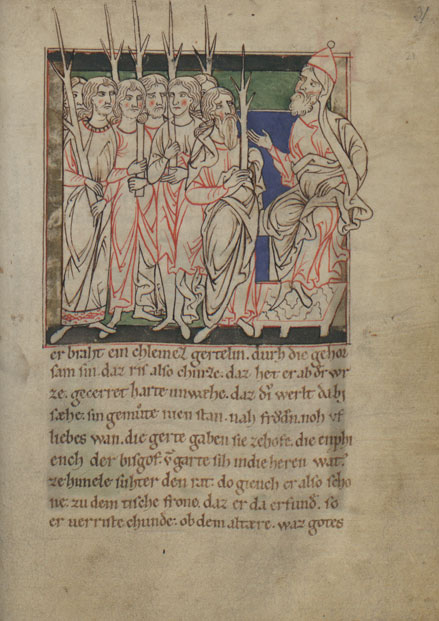 er braht ein chleinez gertelin. durh die gehor
sam sin. daz ris also churze. daz het er ab d' wr
ze. gecerret harte unwæhe. daz d' werlt da bi
sæhe. sin gemůte nien stan. nah frödn. noh uf
liebes wan. die gerte gaben sie ze hofe. die enphi
ench der bisgof. v̄ garte sih in die heren wat.
ze himele sůhter den rat. do giench er also scho
ne. zu dem tische frone. daz er da erfund. so
er verriste chunde. ob dem altære. waz gotes